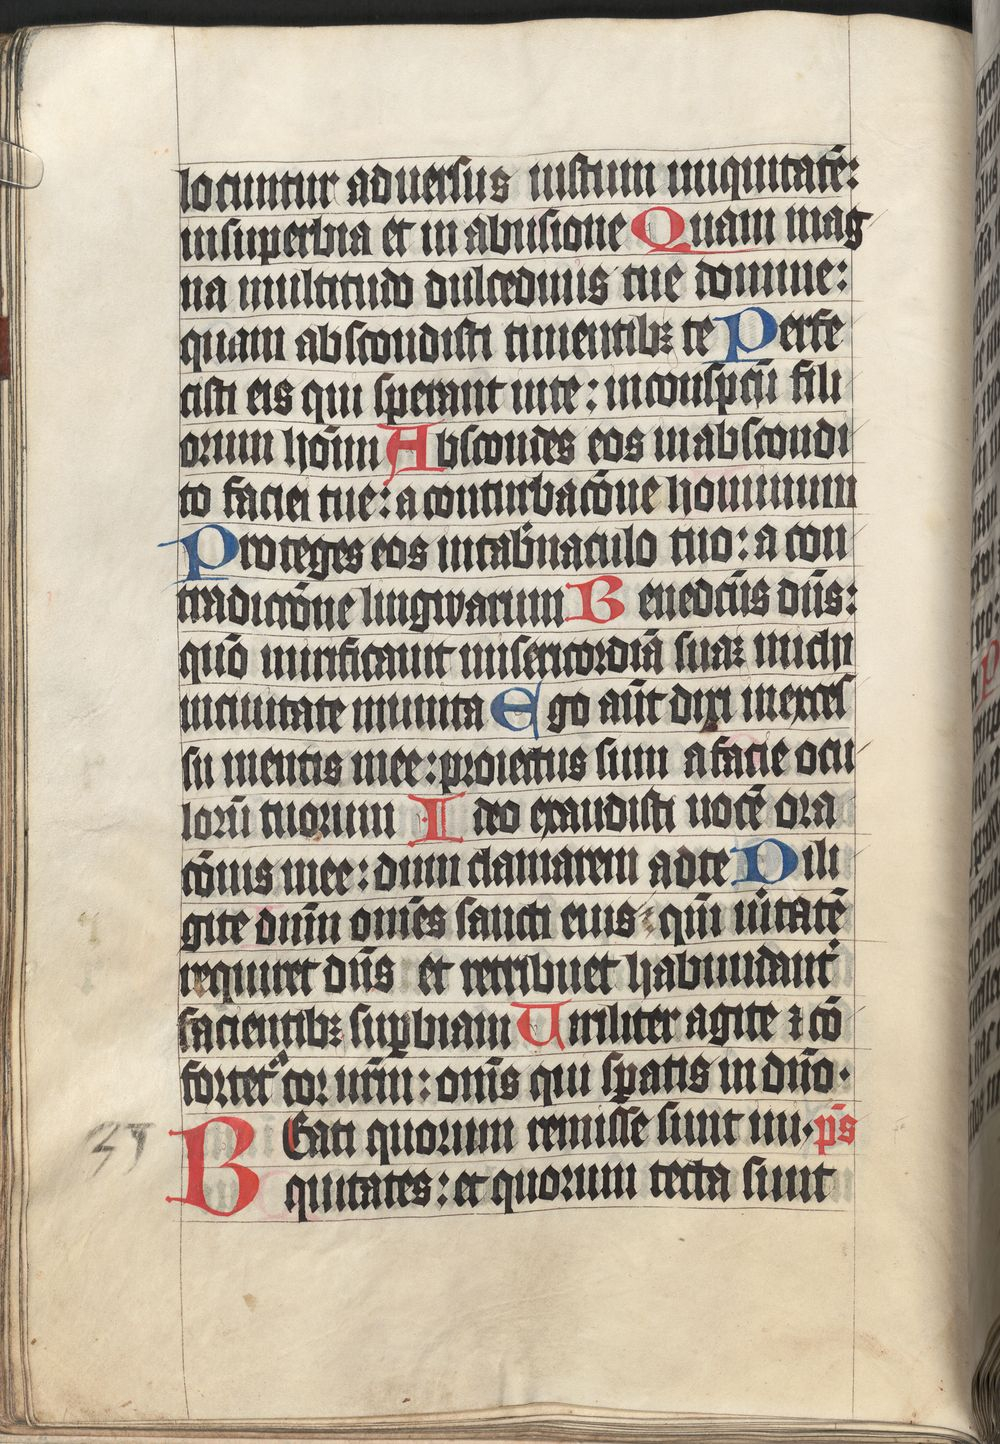 locuntur aduersus iustum iniquitatē:
insuperbia et in abusione Quam mag
na multitudo dulcedinis tue domine:
quam abscondisti timentibꝫ te Perfe
cisti eis qui sperant inte: inconspcū fili
orum hōim Abscondes eos inabscondi
to faciei tue: a conturbacōne hominum
Proteges eos intab̄naculo tuo: a con
tradictōne lingwarum Benedcūs dūs:
quō mirificauit misericordiā suaꝫ michi
inciuitate munita Ego aūt dixi inexces
su mentis mee: proiectus sum a facie ocu
lorū tuorum Ideo exaudisti uocē ora
cōnis mee: dum clamarem adte Dili
gite dnm̄ omēs sancti eius: qm̄ uītatē
requiret dūs et retribuet habundant᷒
facientibꝫ suꝑbiam Uiriliter agite ⁊ cō
fortet᷒ cor urm̄: omīs qui sꝑatis in dūo.
BEati quorum remisse sunt ini. ps̄
quitates: et quorum tecta sunt